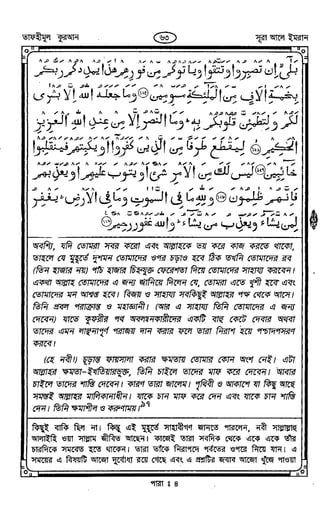 তাফহীমুল কুরআন
৬৩
সূরা আলে ইমরান
بَلَىٰ إِن تَصْبِرُوا وَتَتَّقُوا وَيَأْتُوكُم مِّن فَوْرِهِمْ هَٰذَا يُمْدِدْكُمْ رَبُّكُم
بِخَمْسَةِ آلَافٍ مِّنَ الْمَلَائِكَةِ مُسَوِّمِينَ ﴿١٢٥﴾ وَمَا جَعَلَهُ اللَّهُ إِلَّا بُشْرَىٰ
لَكُمْ وَلِتَطْمَئِنَّ قُلُوبُكُم بِهِ وَمَا النَّصْرُ إِلَّا مِنْ عِندِ اللَّهِ الْعَزِيزِ
الْحَكِيمِ ﴿١٢٦﴾ لِيَقْطَعَ طَرَفًا مِّنَ الَّذِينَ كَفَرُوا أَوْ يَكْبِتَهُمْ فَيَنقَلِبُوا
خَائِبِينَ ﴿١٢٧﴾ لَيْسَ لَكَ مِنَ الْأَمْرِ شَيْءٌ أَوْ يَتُوبَ عَلَيْهِمْ أَوْ يُعَذِّبَهُمْ
فَإِنَّهُمْ ظَالِمُونَ ﴿١٢٨﴾ وَلِلَّهِ مَا فِي السَّمَاوَاتِ وَمَا فِي الْأَرْضِ يَغْفِرُ
لِمَن يَشَاءُ وَيُعَذِّبُ مَن يَشَاءُ وَاللَّهُ غَفُورٌ رَّحِيمٌ ﴿١٢٩﴾
অবশ্যি, যদি তোমরা সবর করো এবং আল্লাহকে ভয় করে কাজ করতে থাকো,
তাহলে যে মুহূর্তে দুশমন তোমাদের ওপর চড়াও হবে ঠিক তখনি তোমাদের রব
(তিন হাজার নয়) পাঁচ হাজার চিহ্নযুক্ত ফেরেশতা দিয়ে তোমাদের সাহায্য করবেন।
একথা আল্লাহ তোমাদের এ জন্য জানিয়ে দিলেন যে, তোমরা এতে খুশী হবে এবং
তোমাদের মন আশ্বস্ত হবে। বিজয় ও সাহায্য সবকিছুই আল্লাহর পক্ষ থেকে আসে।
তিনি প্রবল পরাক্রান্ত ও মহাজ্ঞানী। (আর এ সাহায্য তিনি তোমাদের এ জন্য
দেবেন) যাতে কুফরীর পথ অবলম্বনকারীদের একটি বাহু কেটে দেবার অথবা
তাদের এমন লাঞ্ছনাপূর্ণ পরাজয় দান করার ফলে তারা নিরাশ হয়ে পশ্চাদপসরণ
করবে।
(হে নবী!) চূড়ান্ত ফায়সালা করার ক্ষমতায় তোমার কোন অংশ নেই। এটা
আল্লাহর ক্ষমতা-ইখতিয়ারভুক্ত, তিনি চাইলে তাদের মাফ করে দেবেন। আবার
চাইলে তাদের শাস্তি দেবেন। কারণ তারা জালেম। পৃথিবী ও আকাশে যা কিছু আছে
সমস্তই আল্লাহর মালিকানাধীন। যাকে চান মাফ করে দেন এবং যাকে চান শাস্তি
দেন। তিনি ক্ষমাশীল ও করুণাময়।৯৭
কিছুই বাকি ছিল না। কিন্তু এই মুহূর্তে সাহাবীগণ জানতে পারলেন, নবী সাল্লাল্লাহু
আলাইহি ওয়া সাল্লাম জীবিত আছেন। কাজেই তারা সবদিক থেকে একে একে তাঁর
চারদিকে সমবেত হতে থাকেন। তারা তাঁকে নিরাপদে পর্বতের ওপরে নিয়ে যান। এ
সময়ের এ বিষয়টি আজো দুর্বোধ্য রয়ে গেছে এবং এ প্রশ্নটির জবাব আজো খুঁজে পাওয়া
পারা : ৪